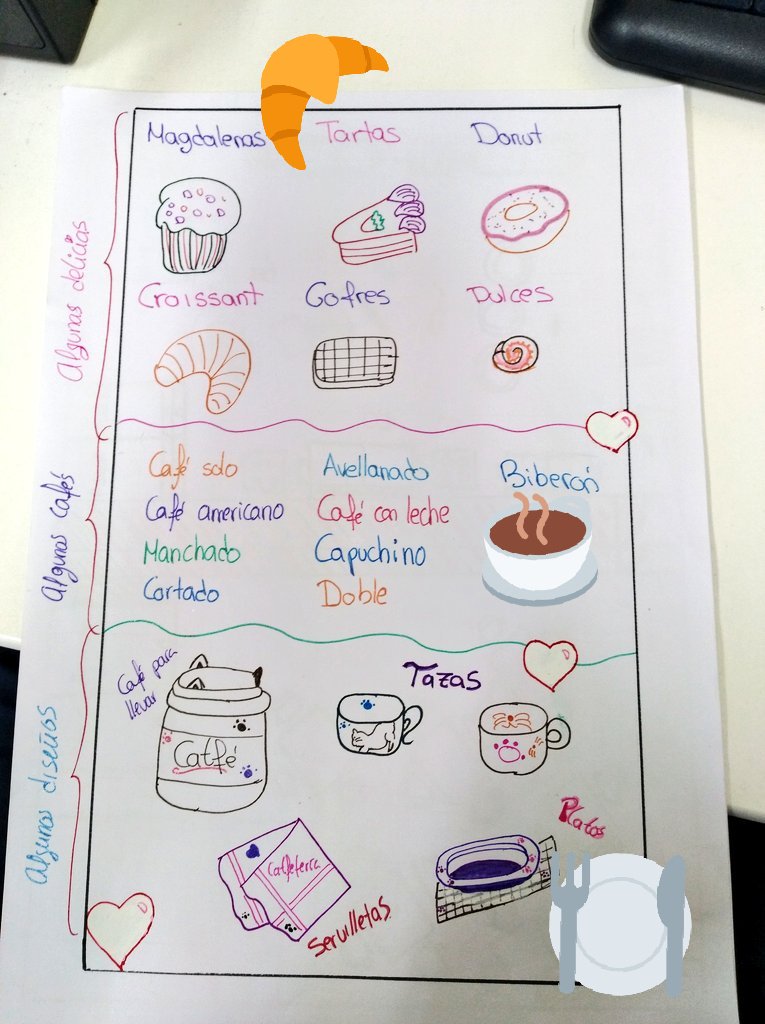 Algunas delicias
Magdalenas Tartas Donut
Croissant Gofres Dulces
Algunos cafés
Café solo Avellanado Biberón
Café americano Café con leche
Manchado Capuchino
Cortado Doble
Algunos diseños
Café para
llevar
Catfé
Tazas
Platos
Catfeterra
Servilletas